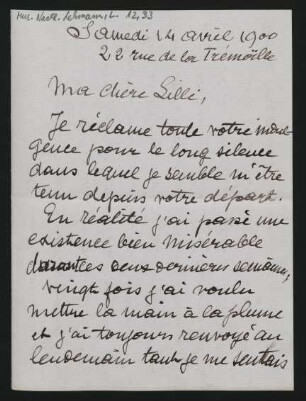 Mus. Nachl. Lehmann, L. 12,93
Samedi 14 avril 1900
22 rue de la Trémoïlle
Ma chère Lilli,
Je réclame toute votre indul
gence pour le long silence
dans lequel je semble m'être
tenu depuis votre départ.
En réalité j'ai passé une
existence bien misérable
durant ces deux dernières semaines;
vingt fois j'ai voulu
mettre la main à la plume
et j'ai toujours renvoyé au
lendemain tant je me sentais